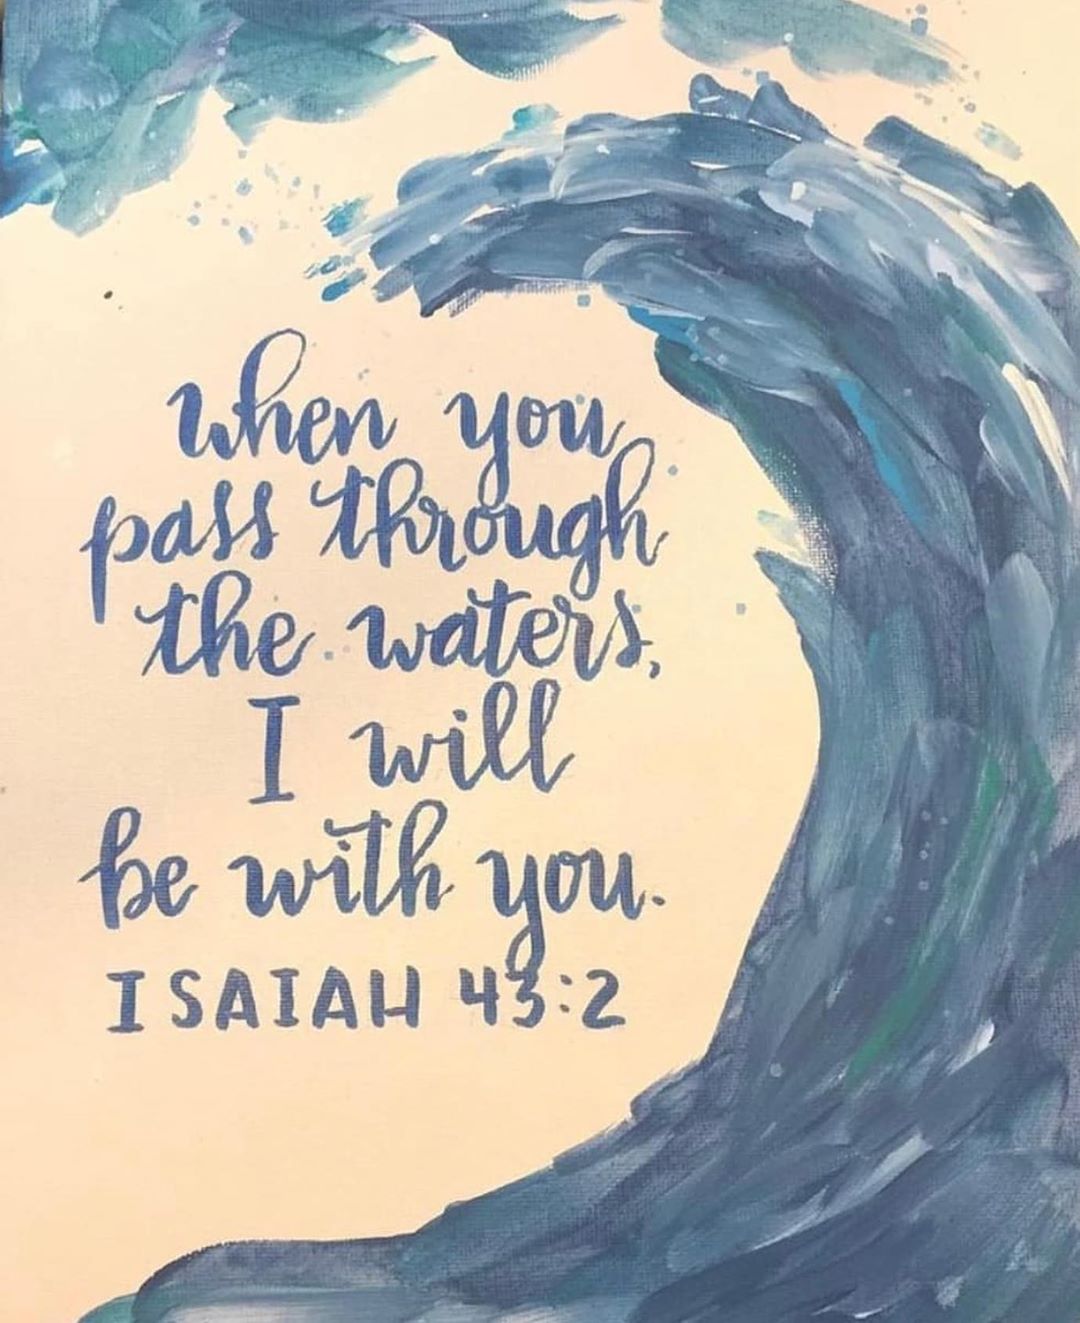 when you
pass through
the waters,
I will
be with you.
ISAIAH 43:2